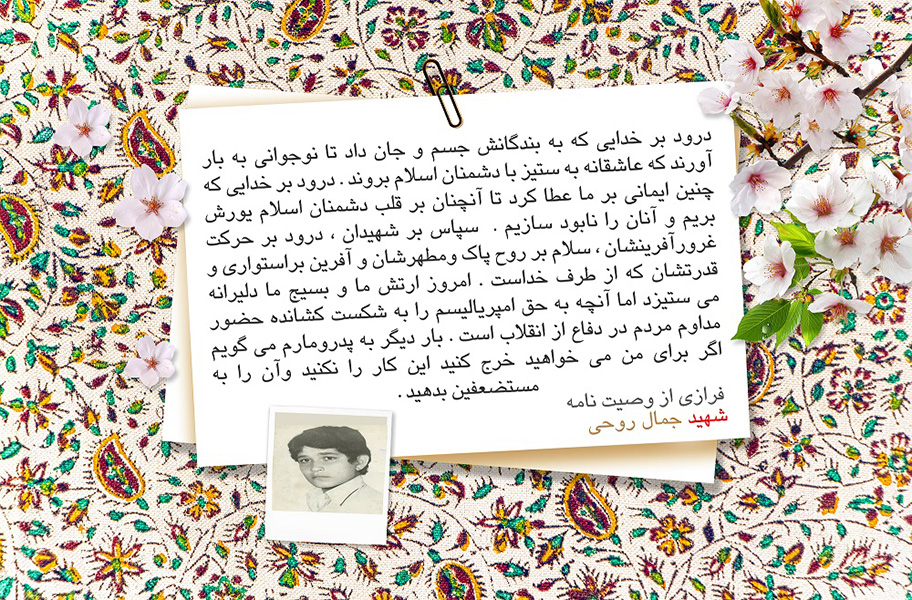 درود بر خدایی که به بندگانش جسم و جان داد تا نوجوانی به بار
آورند که عاشقانه به ستیز با دشمنان اسلام بروند . درود بر خدایی که
چنین ایمانی بر ما عطا کرد تا آنچنان بر قلب دشمنان اسلام یورش
بریم و آنان را نابود سازیم . سپاس بر شهیدان ، درود بر حرکت
غرورآفرینشان ، سلام بر روح پاک ومطهرشان و آفرین براستواری و
قدرتشان که از طرف خداست . امروز ارتش ما و بسیج ما دلیرانه
می ستیزد اما آنچه به حق امپریالیسم را به شکست کشانده حضور
مداوم مردم در دفاع از انقلاب است . بار دیگر به پدرومارم می گویم
اگر برای من می خواهید خرج کنید این کار را نکنید وآن را به
مستضعفین بدهید .
فرازی از وصیت نامه
شهید جمال روحی